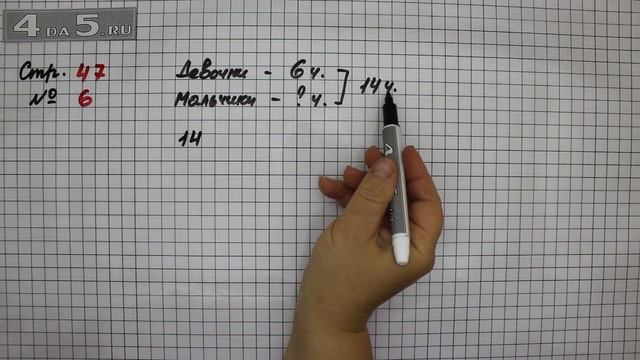 4 DA 5.RU
Стр. 47
№ 6
Девочки - 6 ч.
Мальчики - ? ч.
14 ч.
14